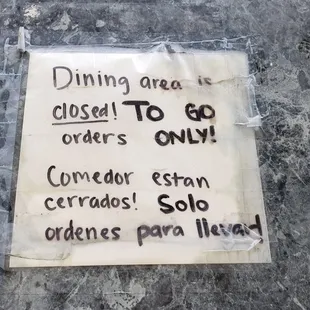 Dining area is
closed! TO GO
orders ONLY!
Comedor estan
cerrados! Solo
ordenes para llevar!